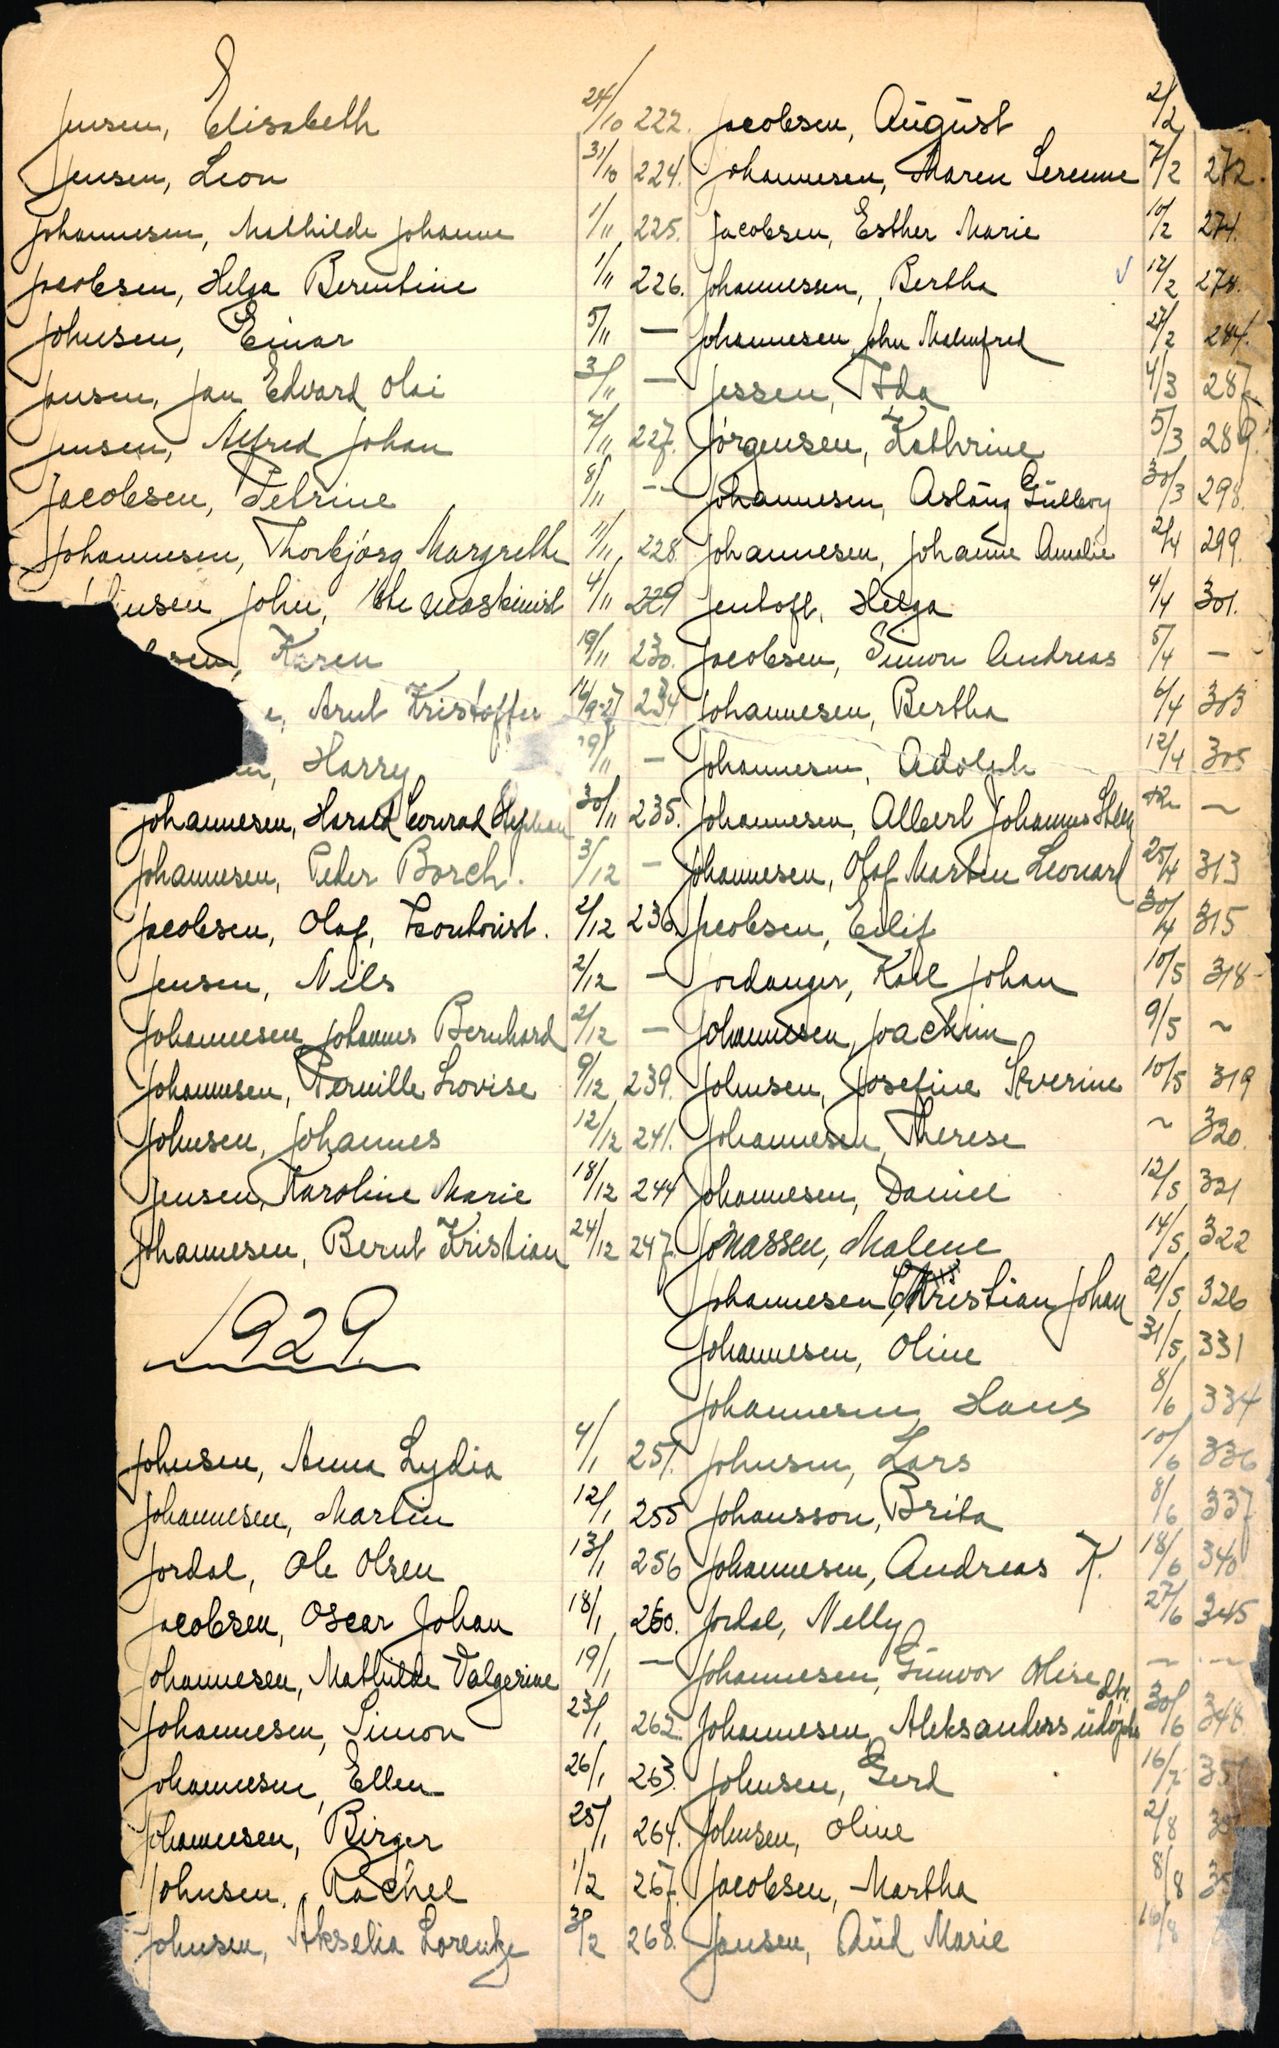 Jensen, Elisabeth 24/10 222.
Jensen, Leon 31/10 224.
Johannesen, Mathilde Johanne 1/11 225.
Jacobsen, Helga Berentine 1/11 226.
Johnsen, Einar 5/11 —
Jansen, Jan Edvard Olai 3/11 —
Jensen, Alfred Johan 7/11 227.
Jacobsen, Petrine 8/11 —
Johannesen, Thorbjørg Margrethe 11/11 228
nsen John, maskinist 4/11 229
sen, Karen 19/11 230.
e, Arnt Kristoffer 14/9-27 234
n, Harry 29/11 —
Johannesen, Harald Conrad Stephan 30/11 235.
Johannesen, Peder Borch. 3/12 —
Jacobsen, Olaf, 2/12 236.
Jensen, Nils 2/12 —
Johannesen, Johannes Bernhard 2/12 —
Johannesen, Pernille Lovise 9/12 239.
Johnsen, Johannes 12/12 241.
Jensen, Karoline Marie 18/12 244
Johannesen, Bernt Kristian 24/12 247.
1929.
Johnsen, Anna Lydia 4/1 251.
Johannesen, Martin 12/1 255
Jordal, Ole Olsen 13/1 256
Jacobsen, Oscar Johan 18/1 260.
Johannesen, Mathilde Valgerine 19/1 —
Johannesen, Simon 23/1 262.
Johannesen, Ellen 26/1 263.
Johannesen, Birger 25/1 264.
Johnsen, Rachel 1/2 267.
Johnsen, Akselia Lorentze 3/2 268.
Jacobsen, August 2/2
Johannesen, Maren Serenne 7/2 272.
Jacobsen, Esther Marie 10/2 274.
Johannessen, Bertha ✓ 12/2 278.
Johannesen, John Malmfred 27/2 284.
Jessen, Ida 4/3 287.
Jørgensen, Kathrine 5/3 289.
Johannesen, Aslaug Gullborg 30/3 298.
Johannesen, Johanne Amalie 2/4 299.
Jentoft, Helga 4/4 301.
Jacobsen, Simon Andreas 5/4 —
Johannesen, Bertha 6/4 303
Johannesen, Adolph 12/4 305
Johannesen, Albert Johannes —
Johannesen, Olaf Martin Leonard 25/4 313
Jacobsen, Eilif 30/4 315
Jordanger, Karl Johan 10/5 318
Johannesen, Joachim 9/5 ~
Johnsen, Josefine Severine 10/5 319
Johannesen, Therese ~ 320.
Johannesen, Daniel 12/5 321
Jonassen, Malene 14/5 322
Johannesen, Christian Johan 21/5 326
Johannesen, Oline 31/5 331
Johannesen Hans 8/6 334
Johnsen, Lars 10/6 336
Johansson, Brita 8/6 337
Johannesen, Andreas K. 18/6 340
Jordal, Nelly 27/6 345
Johannesen, Gunvor Olise ~ ~
Johannesen, Aleksanders udøpte dtr. 30/6 348.
Johnsen, Gerd 16/7 351
Johnsen, Oline 2/8
Jacobsen, Martha 8/8
Jansen, Aud Marie